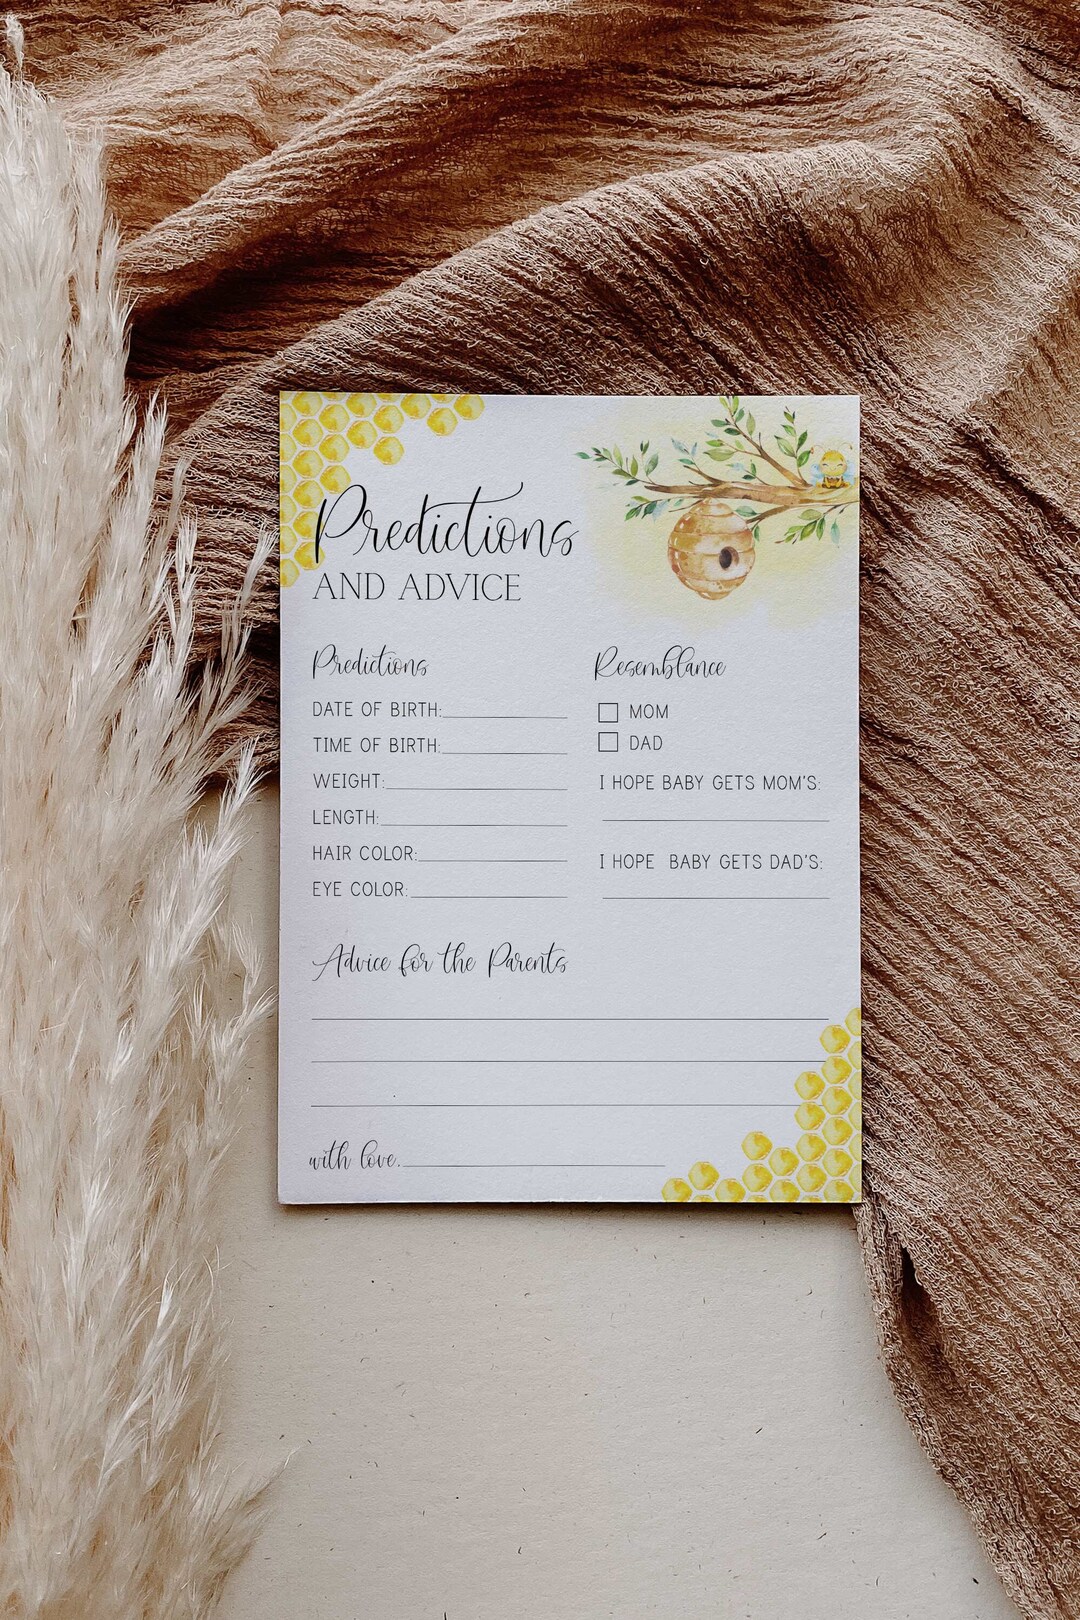 Predictions
AND ADVICE
Predictions
DATE OF BIRTH:
TIME OF BIRTH:
WEIGHT:
LENGTH:
HAIR COLOR:
EYE COLOR:
Resemblance
MOM
DAD
I HOPE BABY GETS MOM'S:
I HOPE BABY GETS DAD'S:
Advice for the Parents
with love,